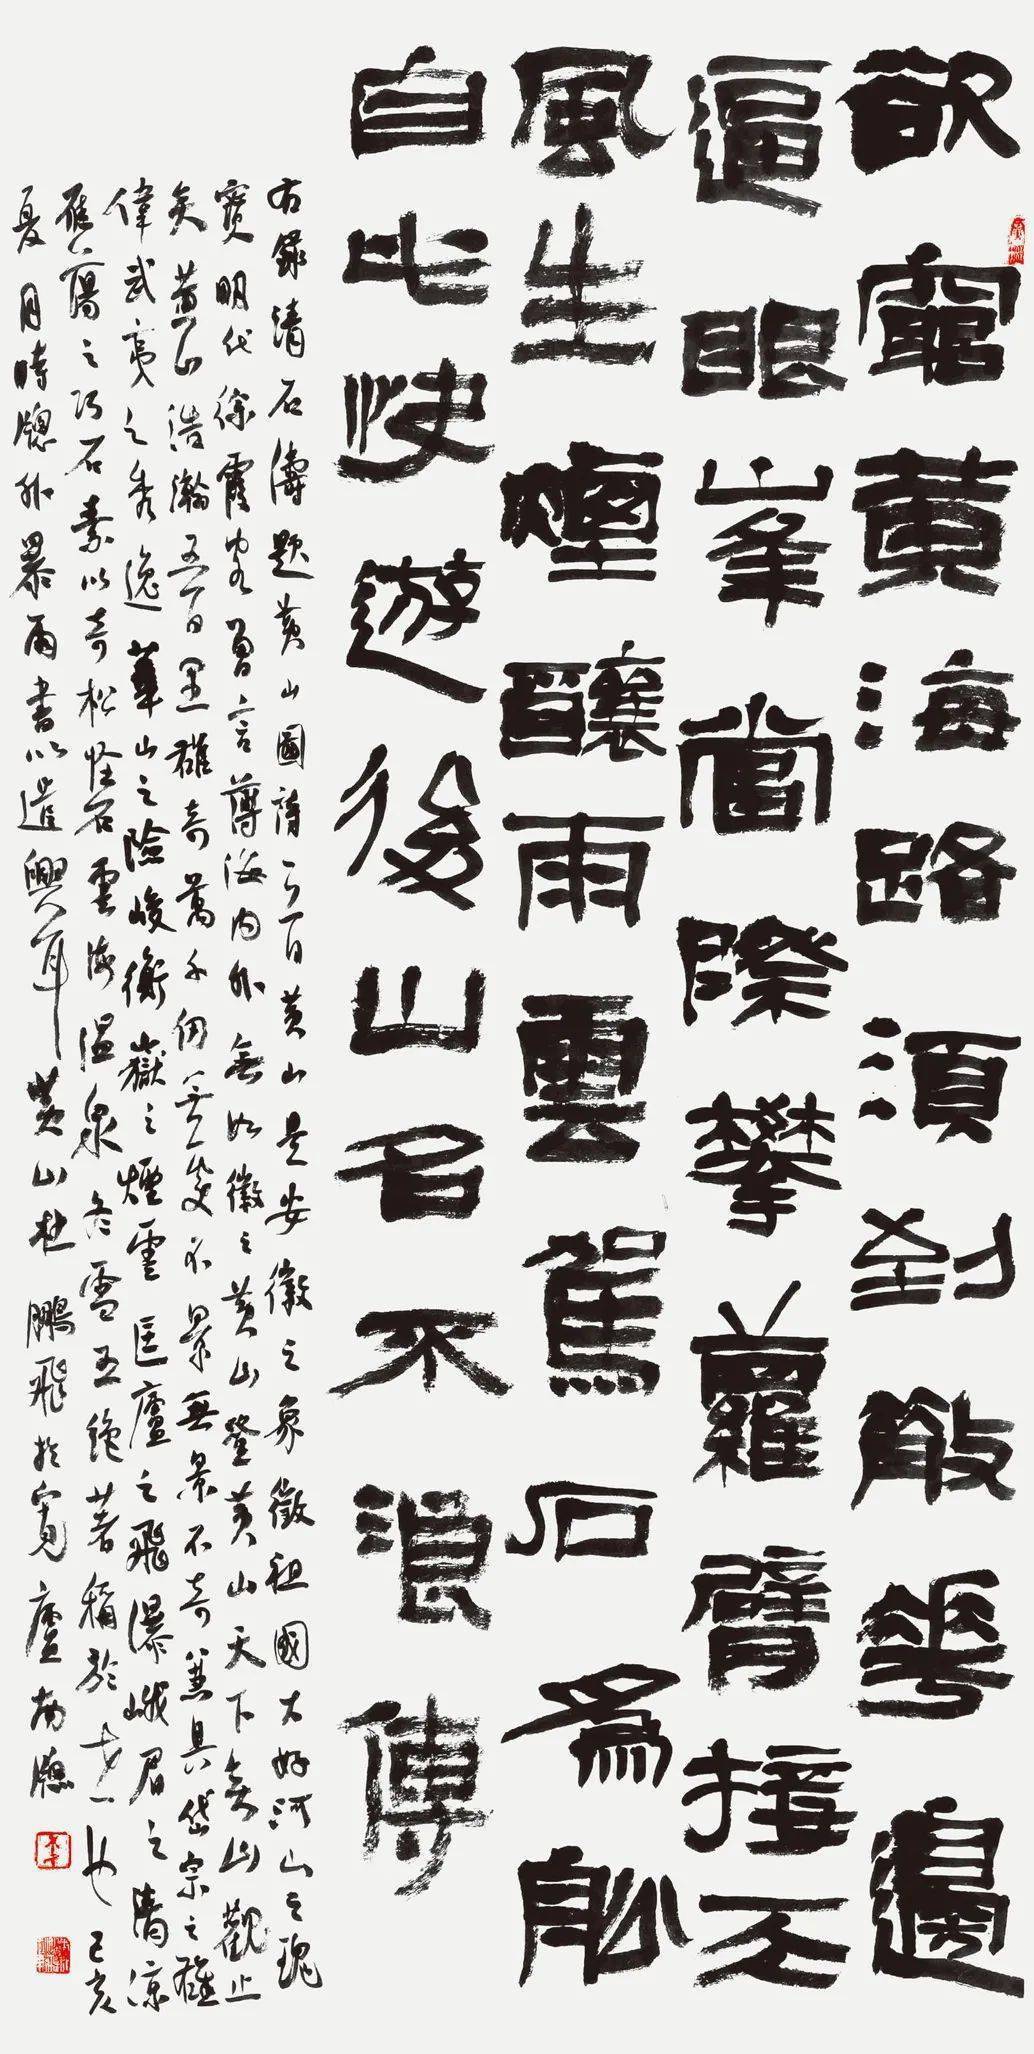 欲窮黃海路須到散花邊
逼眼峯當際攀蘿臂接天
風生煙釀雨雲駕石爲船
自此快遊後山名不浪傳
右錄清石濤題黃山圖詩一首黃山是安徽之象徵祖國大好河山之瑰
寶明代徐霞客曾言薄海內外無如徽之黃山登黃山天下無山觀止
矣黃山浩瀚五百里雄奇萬千仞無處不景無景不奇兼具岱宗之雄
偉武夷之秀逸華山之險峻衡嶽之煙雲匡廬之飛瀑峨眉之清涼
雁蕩之巧石素以奇松怪石雲海溫泉冬雪五絕著稱於世也己亥
夏月時窗外暴雨書以遣興耳黃山杜鵬飛於寬廬南窗